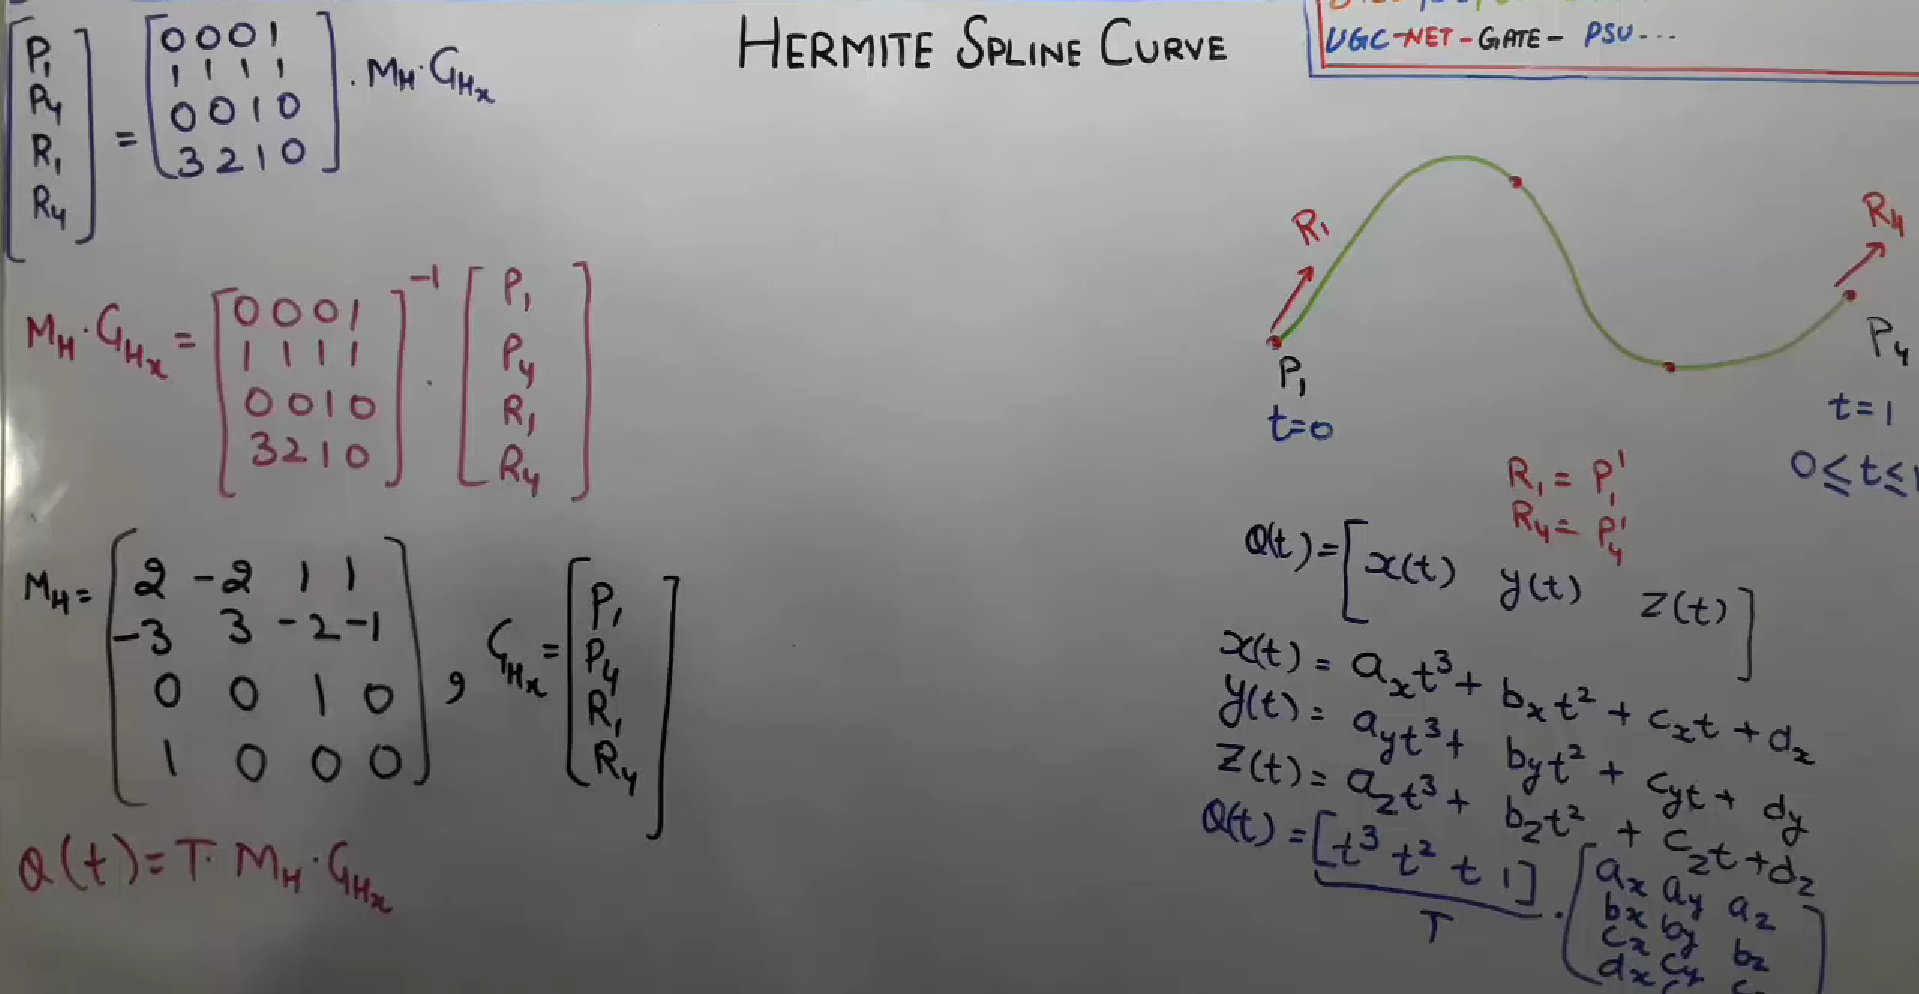 HERMITE SPLINE CURVE
UGC-NET-GATE- PSU...
[P₁ P₄ R₁ R₄] = [0 0 0 1
1 1 1 1
0 0 1 0
3 2 1 0] . M_H . G_Hx
M_H . G_Hx = [0 0 0 1
1 1 1 1
0 0 1 0
3 2 1 0]⁻¹ . [P₁
P₄
R₁
R₄]
M_H = [2 -2 1 1
-3 3 -2 -1
0 0 1 0
1 0 0 0] , G_Hx = [P₁
P₄
R₁
R₄]
Q(t) = T. M_H . G_Hx
R₁
R₄
P₁
t=0
P₄
t=1
0≤t≤1
R₁ = P₁'
R₄ = P₄'
Q(t) = [x(t) y(t) z(t)]
x(t) = a_x t³ + b_x t² + c_x t + d_x
y(t) = a_y t³ + b_y t² + c_y t + d_y
z(t) = a_z t³ + b_z t² + c_z t + d_z
Q(t) = [t³ t² t 1] . [a_x a_y a_z
T
b_x b_y b_z
c_x c_y
d_x